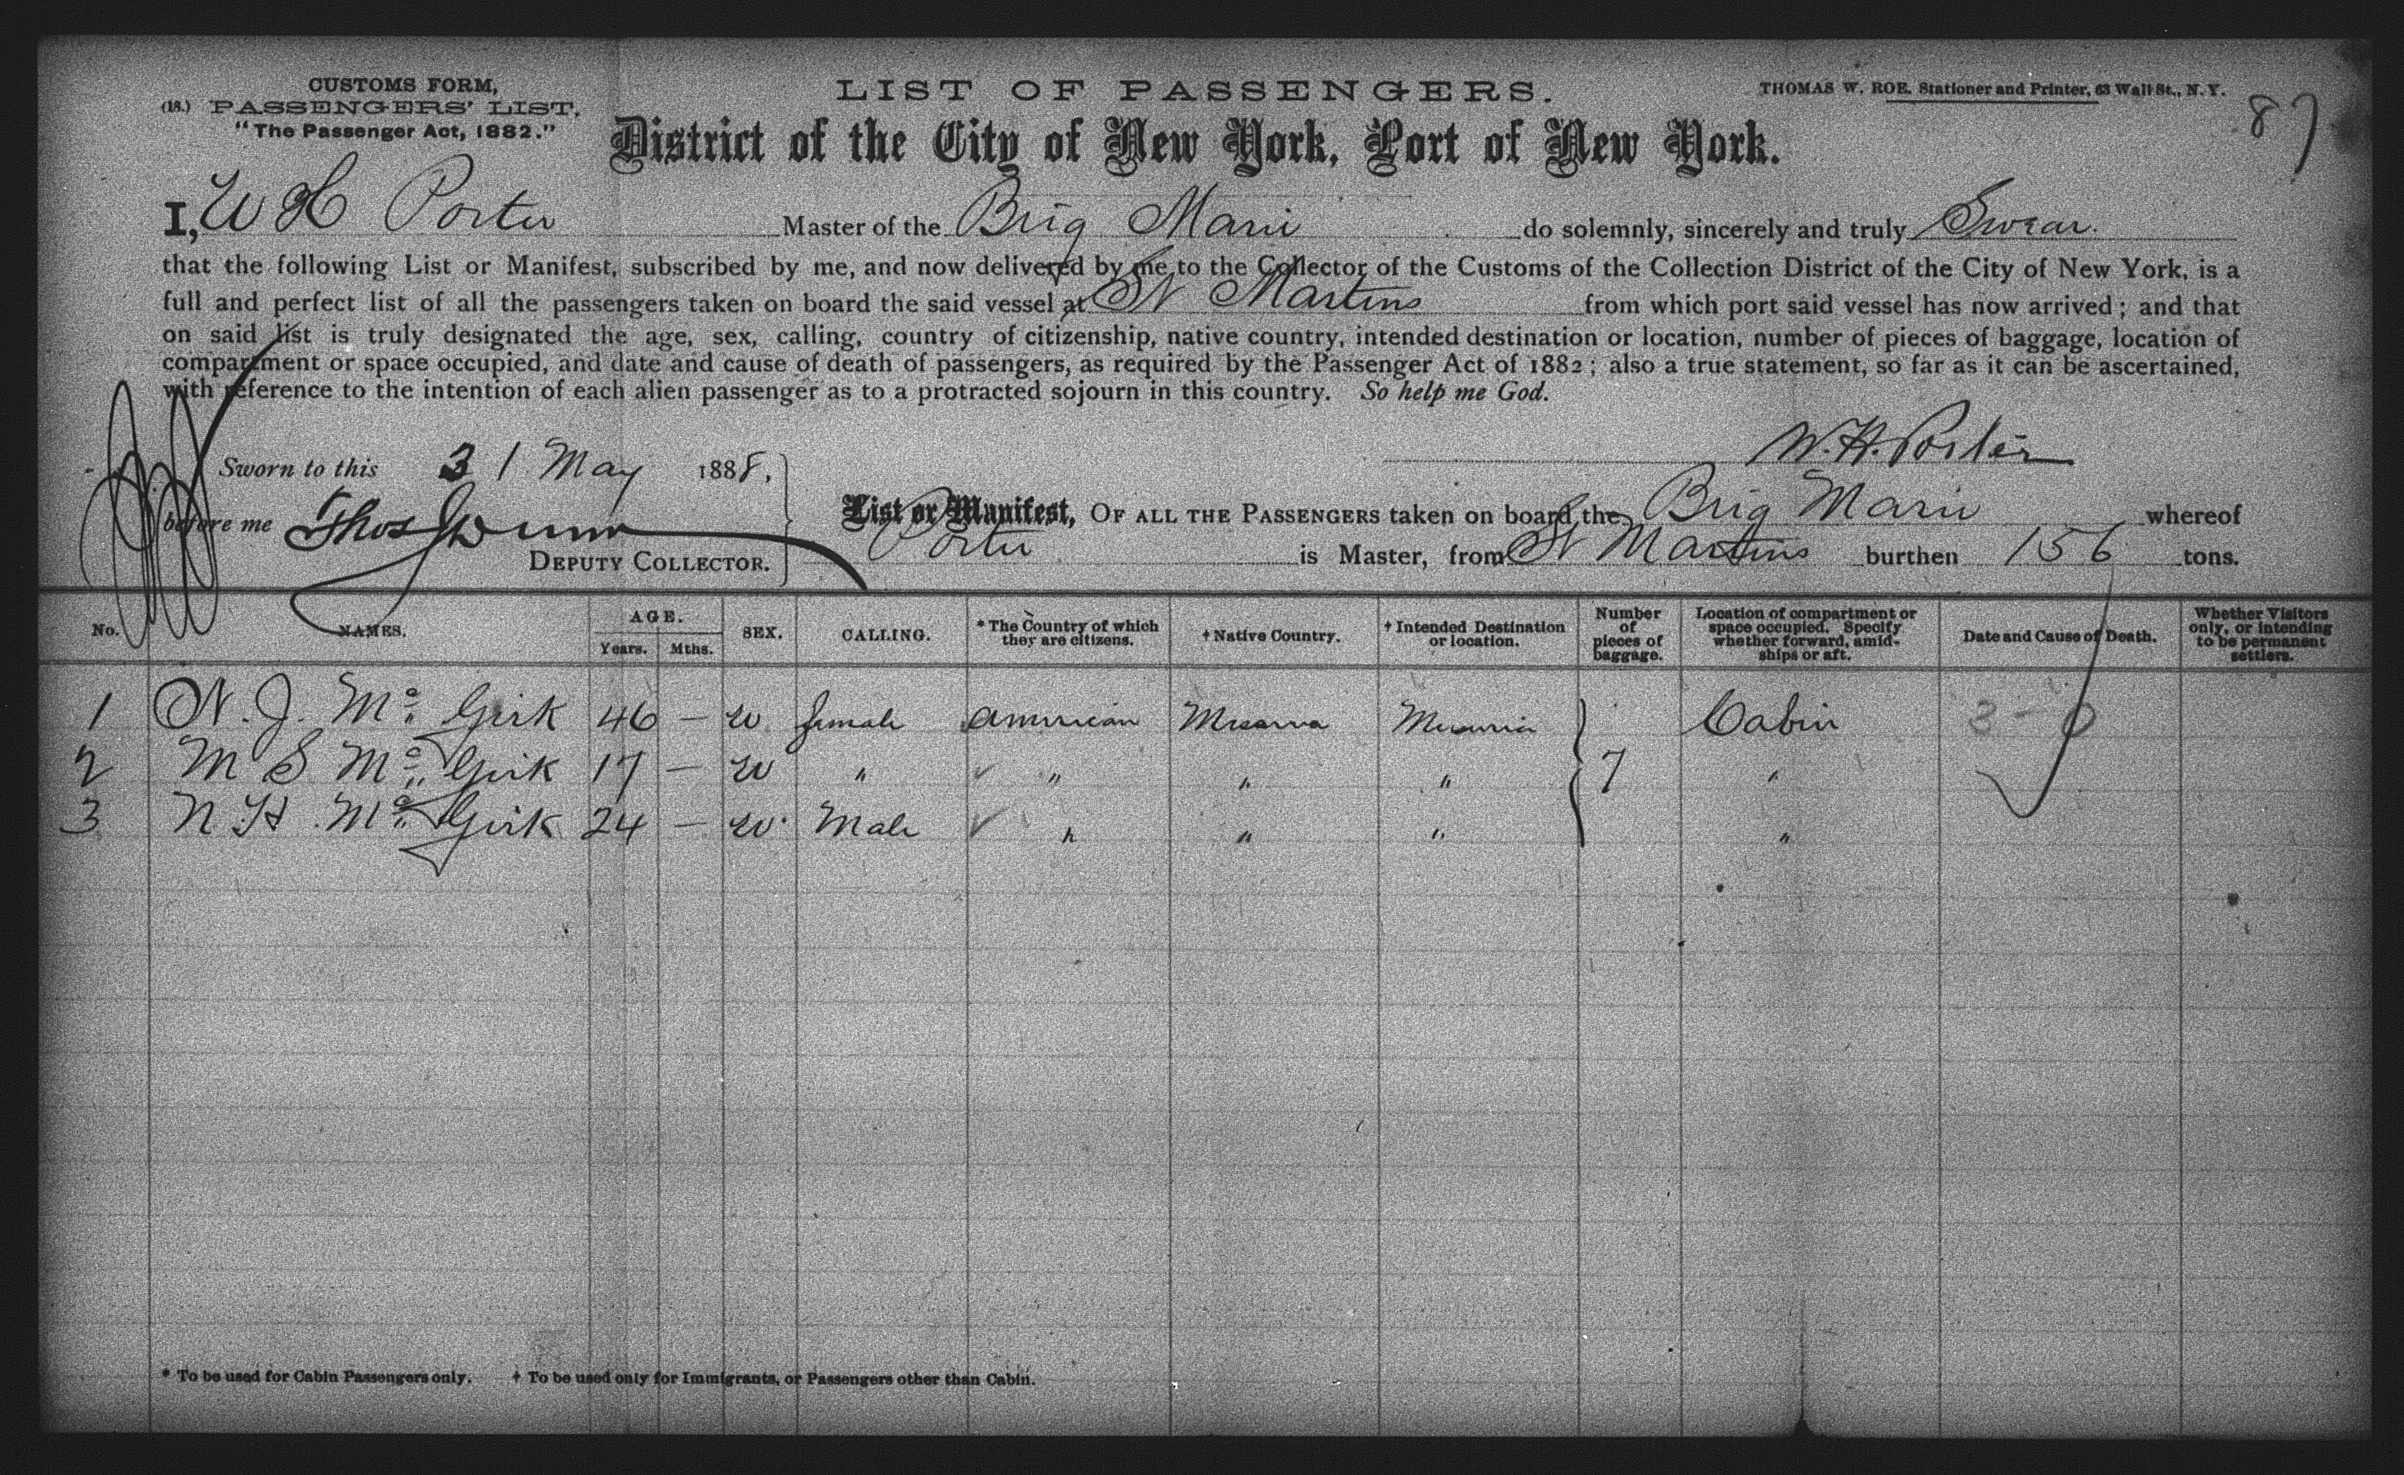 CUSTOMS FORM,
(18.) PASSENGERS' LIST.
"The Passenger Act, 1882."
LIST OF PASSENGERS.
THOMAS W. ROE, Stationer and Printer, 63 Wall St., N. Y.
87
District of the City of New York, Port of New York.
I, W H Porter Master of the Brig Marie do solemnly, sincerely and truly Swear
that the following List or Manifest, subscribed by me, and now delivered by me to the Collector of the Customs of the Collection District of the City of New York, is a
full and perfect list of all the passengers taken on board the said vessel at St Martins from which port said vessel has now arrived; and that
on said list is truly designated the age, sex, calling, country of citizenship, native country, intended destination or location, number of pieces of baggage, location of
compartment or space occupied, and date and cause of death of passengers, as required by the Passenger Act of 1882; also a true statement, so far as it can be ascertained,
with reference to the intention of each alien passenger as to a protracted sojourn in this country. So help me God.
W. H. Porter
Sworn to this 31 May 1888,
before me Thos Dunn
DEPUTY COLLECTOR.
List or Manifest, OF ALL THE PASSENGERS taken on board the Brig Marie whereof
Porter is Master, from St Martins burthen 156 tons.
No. NAMES. AGE. Years. Mths. SEX. CALLING. * The Country of which they are citizens. † Native Country. † Intended Destination or location. Number of pieces of baggage. Location of compartment or space occupied. Specify whether forward, amidships or aft. Date and Cause of Death. Whether Visitors only, or intending to be permanent settlers.
1 N. J. Mc Girk 46 — W female American Cabin 3-0
2 M S Mc Girk 17 — W " " " " 7 "
3 N H Mc Girk 24 — W Male " " " "
* To be used for Cabin Passengers only. † To be used only for Immigrants, or Passengers other than Cabin.